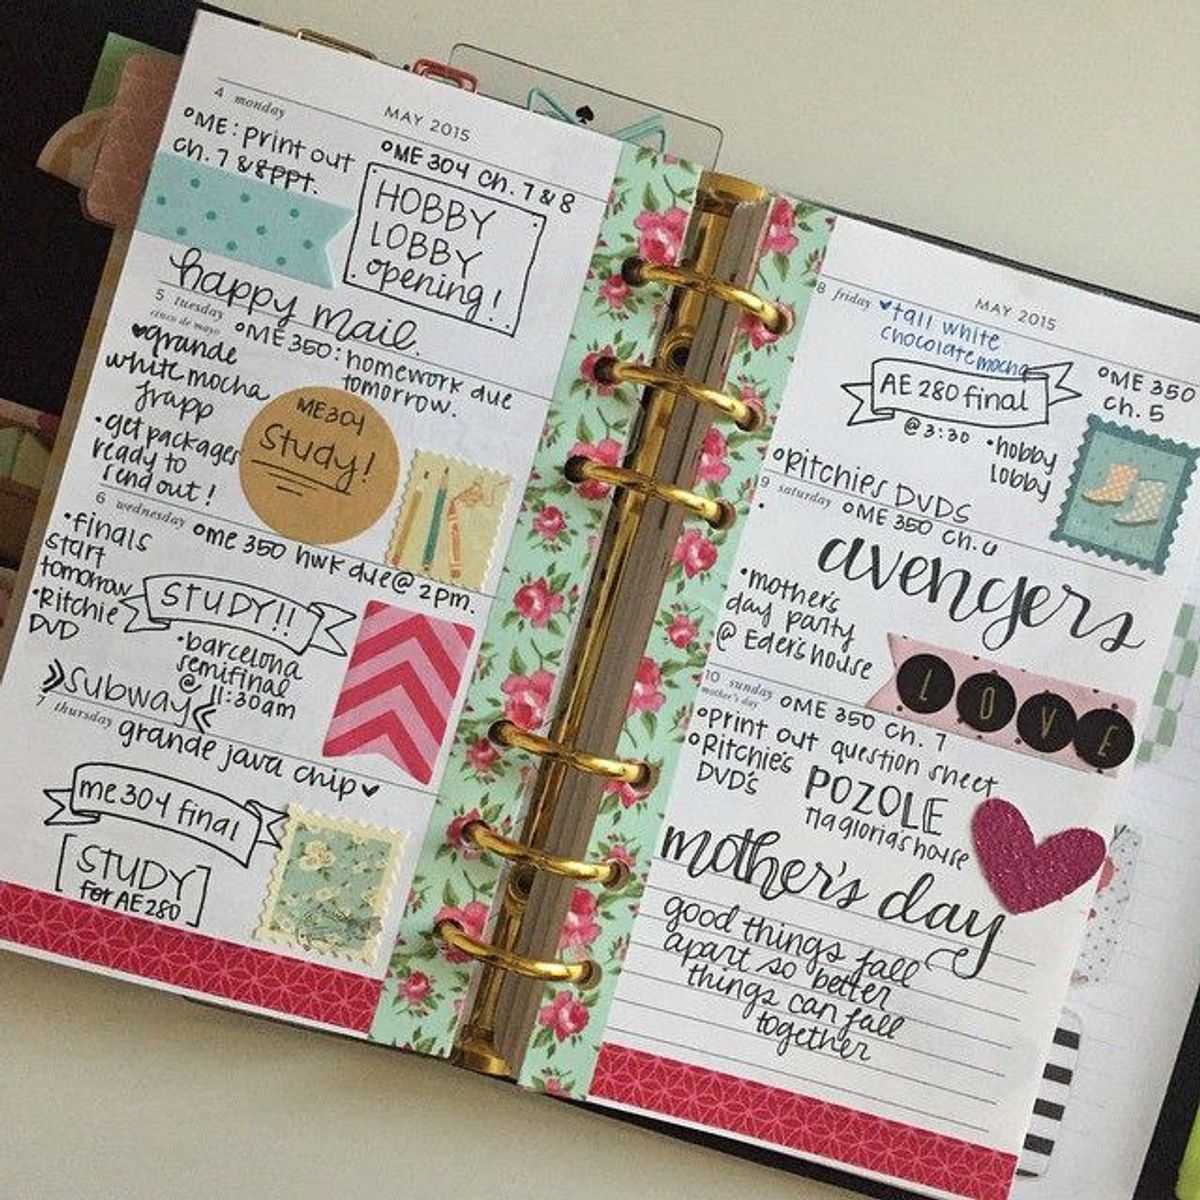 4 monday
MAY 2015
ME: print out
ch. 7 & 8 ppt.
ME 304 ch. 7 & 8
HOBBY
LOBBY
opening!
happy mail.
5 tuesday
cinco de mayo
ME 350: homework due
tomorrow.
grande
white mocha
frapp
• get packages
ready to
send out!
ME304
Study!
6 wednesday
me 350 hwk due @ 2pm.
• finals
start
tomorrow
• Ritchie
DVD
STUDY!!
• barcelona
semifinal
@ 11:30am
» Subway «
7 thursday
grande java chip ♥
me 304 final
[STUDY
for AE 280]
MAY 2015
8 friday
♥ tall white
chocolate mocha
AE 280 final
@ 3:30
ME 350
ch. 5
• hobby
lobby
Ritchies DVDS
9 saturday
ME 350 ch.
avengers
• mother's
day party
@ Eder's house
LOVE
10 sunday
mother's day
ME 350 ch. 7
Print out question sheet
Ritchie's
DVD's
POZOLE
Tia gloria's house
mother's day
good things fall
apart so better
things can fall
together